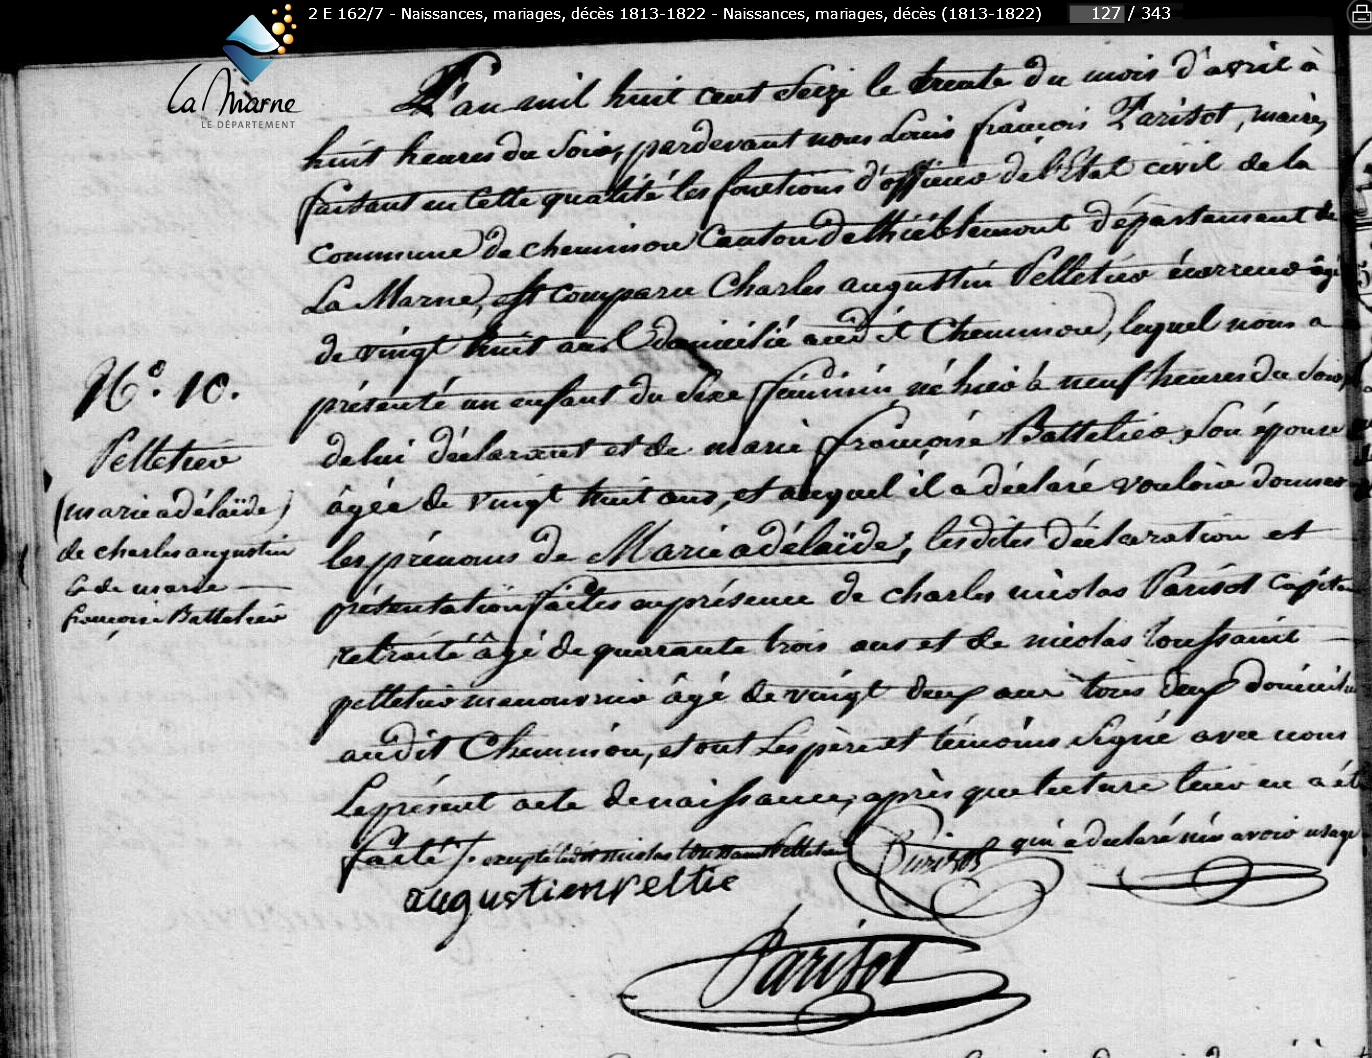 2 E 162/7 - Naissances, mariages, décès 1813-1822 - Naissances, mariages, décès (1813-1822) 127 / 343
La Marne
LE DÉPARTEMENT
L'an mil huit cent seize le trente du mois d'avril à
huit heures du soir, pardevant nous Louis françois Parisot, maire,
faisant en cette qualité les fonctions d'officier de l'Etat civil de la
commune de cheminon Canton de thiéblemont département de
La Marne, est comparu Charles augustin Pelletier âgé
de vingt huit ans domicilié audit Cheminon, lequel nous a
présenté un enfant du sexe féminin né hier à neuf heures du soir,
de lui déclarant et de marie françoise Battelier son épouse
âgée de vingt huit ans, et auquel il a déclaré vouloir donner
les prénoms de Marie adélaïde; lesdites déclaration et
présentation faites en présence de charles nicolas Parisot capitaine
retraité âgé de quarante trois ans et de nicolas toussaint
pelletier manouvrier âgé de vingt deux ans tous deux domiciliés
audit Cheminon, et ont les père et témoins signé avec nous
Le présent acte de naissance, après que lecture leur en a été
faite /. excepté ledit nicolas toussaint Pelletier qui a déclaré n'en avoir usage
Parisot
augustien peltie
Parisot
N.° 10.
Pelletier
(marie adélaïde)
de charles augustin
& de marie
françoise Battelier